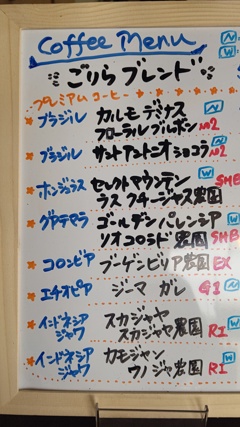 Coffee Menu
N
W
ごりらブレンド
プレミアムコーヒー
ブラジル カルモ デミナス N
フローラルブルボン No2
ブラジル サントアントニオ ショコラ N No2
ホンジュラス セレクトマウンテン W SHG
ラス クチージャス農園
グァテマラ ゴールデン パレンシア W
リオコロラド 農園 SHB
コロンビア ブーゲンビリア農園 EX W
エチオピア ジーマ ガレ G1 N
インドネシア スカジャヤ W
ジャワ スカジャヤ農園 R1
インドネシア カモジャン W
ジャワ ウノジャ農園 R1